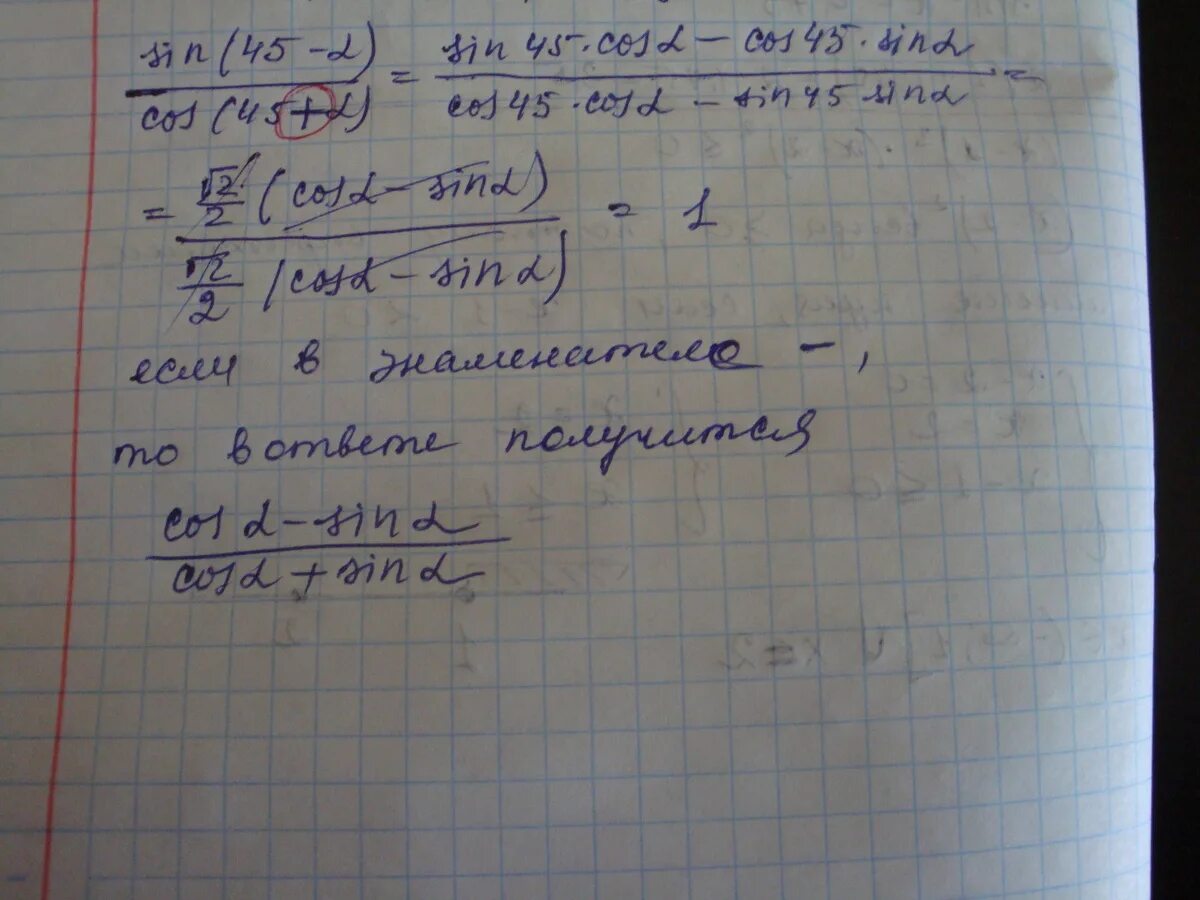 sin(45-α)/cos(45+α) = (sin45·cosα - cos45·sinα)/(cos45·cosα - sin45 sinα) =
= √2/2 (cosα - sinα) / √2/2 (cosα - sinα) = 1
если в знаменателе -,
то в ответе получится
(cosα - sinα)/(cosα + sinα)